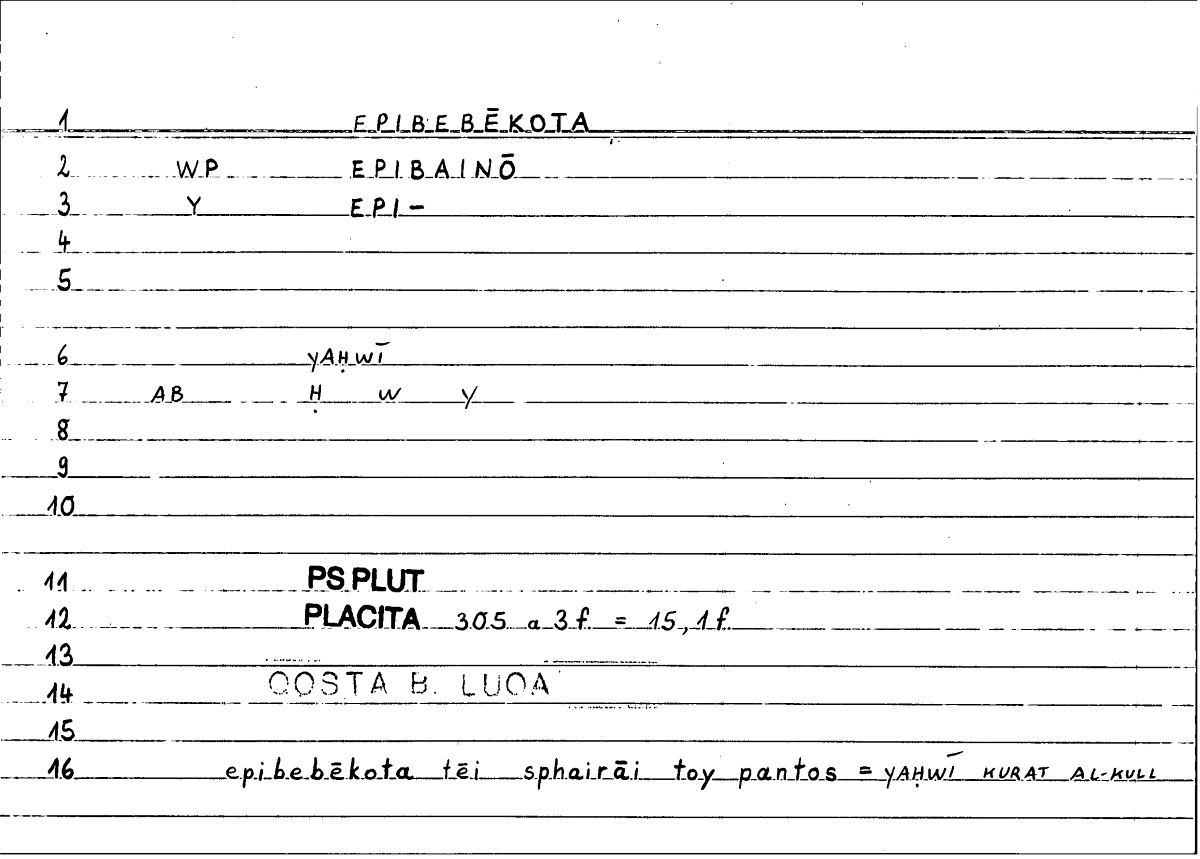 1 EPIBEBĒKOTA
2 WP EPIBAINŌ
3 Y EPI-
4
5
6 YAḤWĪ
7 AB Ḥ W Y
8
9
10
11 PS PLUT
12 PLACITA 305 a 3 f. = 15, 1 f.
13
14 QOSTA B. LUQA
15
16 epibebēkota tēi sphairāi toy pantos = YAḤWĪ KURAT AL-KULL